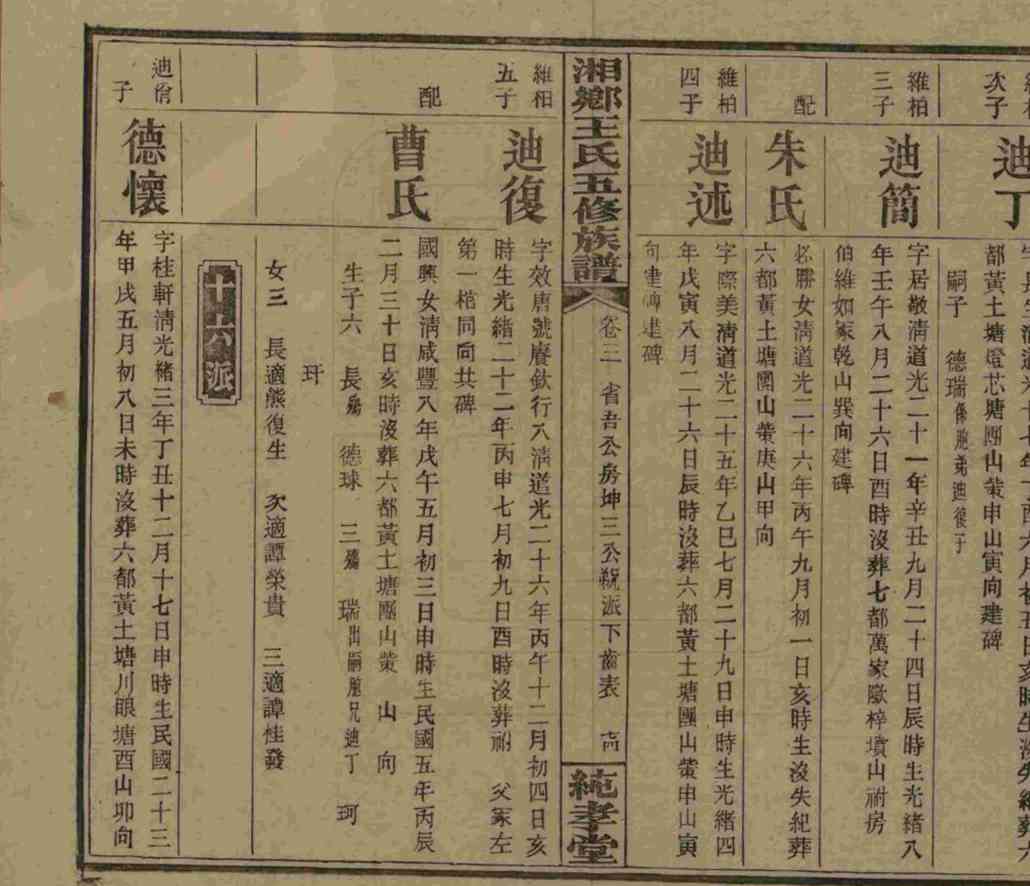 次子
迪丁
都黃土塘燈芯塘團山塋申山寅向建碑
嗣子 德瑞係胞弟迪復子
維柏三子
迪簡
字居敬淸道光二十一年辛丑九月二十四日辰時生光緖八
年壬午八月二十六日酉時沒葬七都萬家歐梓墳山祔房
伯維如冢乾山巽向建碑
配
朱氏
必勝女淸道光二十六年丙午九月初一日亥時生沒失紀葬
六都黃土塘團山塋庚山甲向
維柏四子
迪述
字際美淸道光二十五年乙巳七月二十九日申時生光緖四
年戊寅八月二十六日辰時沒葬六都黃土塘團山塋申山寅
向建碑
湘鄉王氏五修族譜 卷三 省吾公房坤三公 派下齒表 純孝堂
維柏五子
迪復
字效唐號賡欽行八淸道光二十六年丙午十二月初四日亥
時生光緖二十二年丙申七月初九日酉時沒葬祔 父冢左
第一棺同向共碑
配
曹氏
國興女淸咸豐八年戊午五月初三日申時生民國五年丙辰
二月三十日亥時沒葬六都黃土塘團山塋 山 向
生子六 長殤 德球 三殤 瑞出嗣胞兄迪丁 珂
玕
女三 長適熊復生 次適譚榮貴 三適譚桂發
十六派
子
德懷
字桂軒淸光緖三年丁丑十二月十七日申時生民國二十三
年甲戌五月初八日未時沒葬六都黃土塘川眼塘酉山卯向